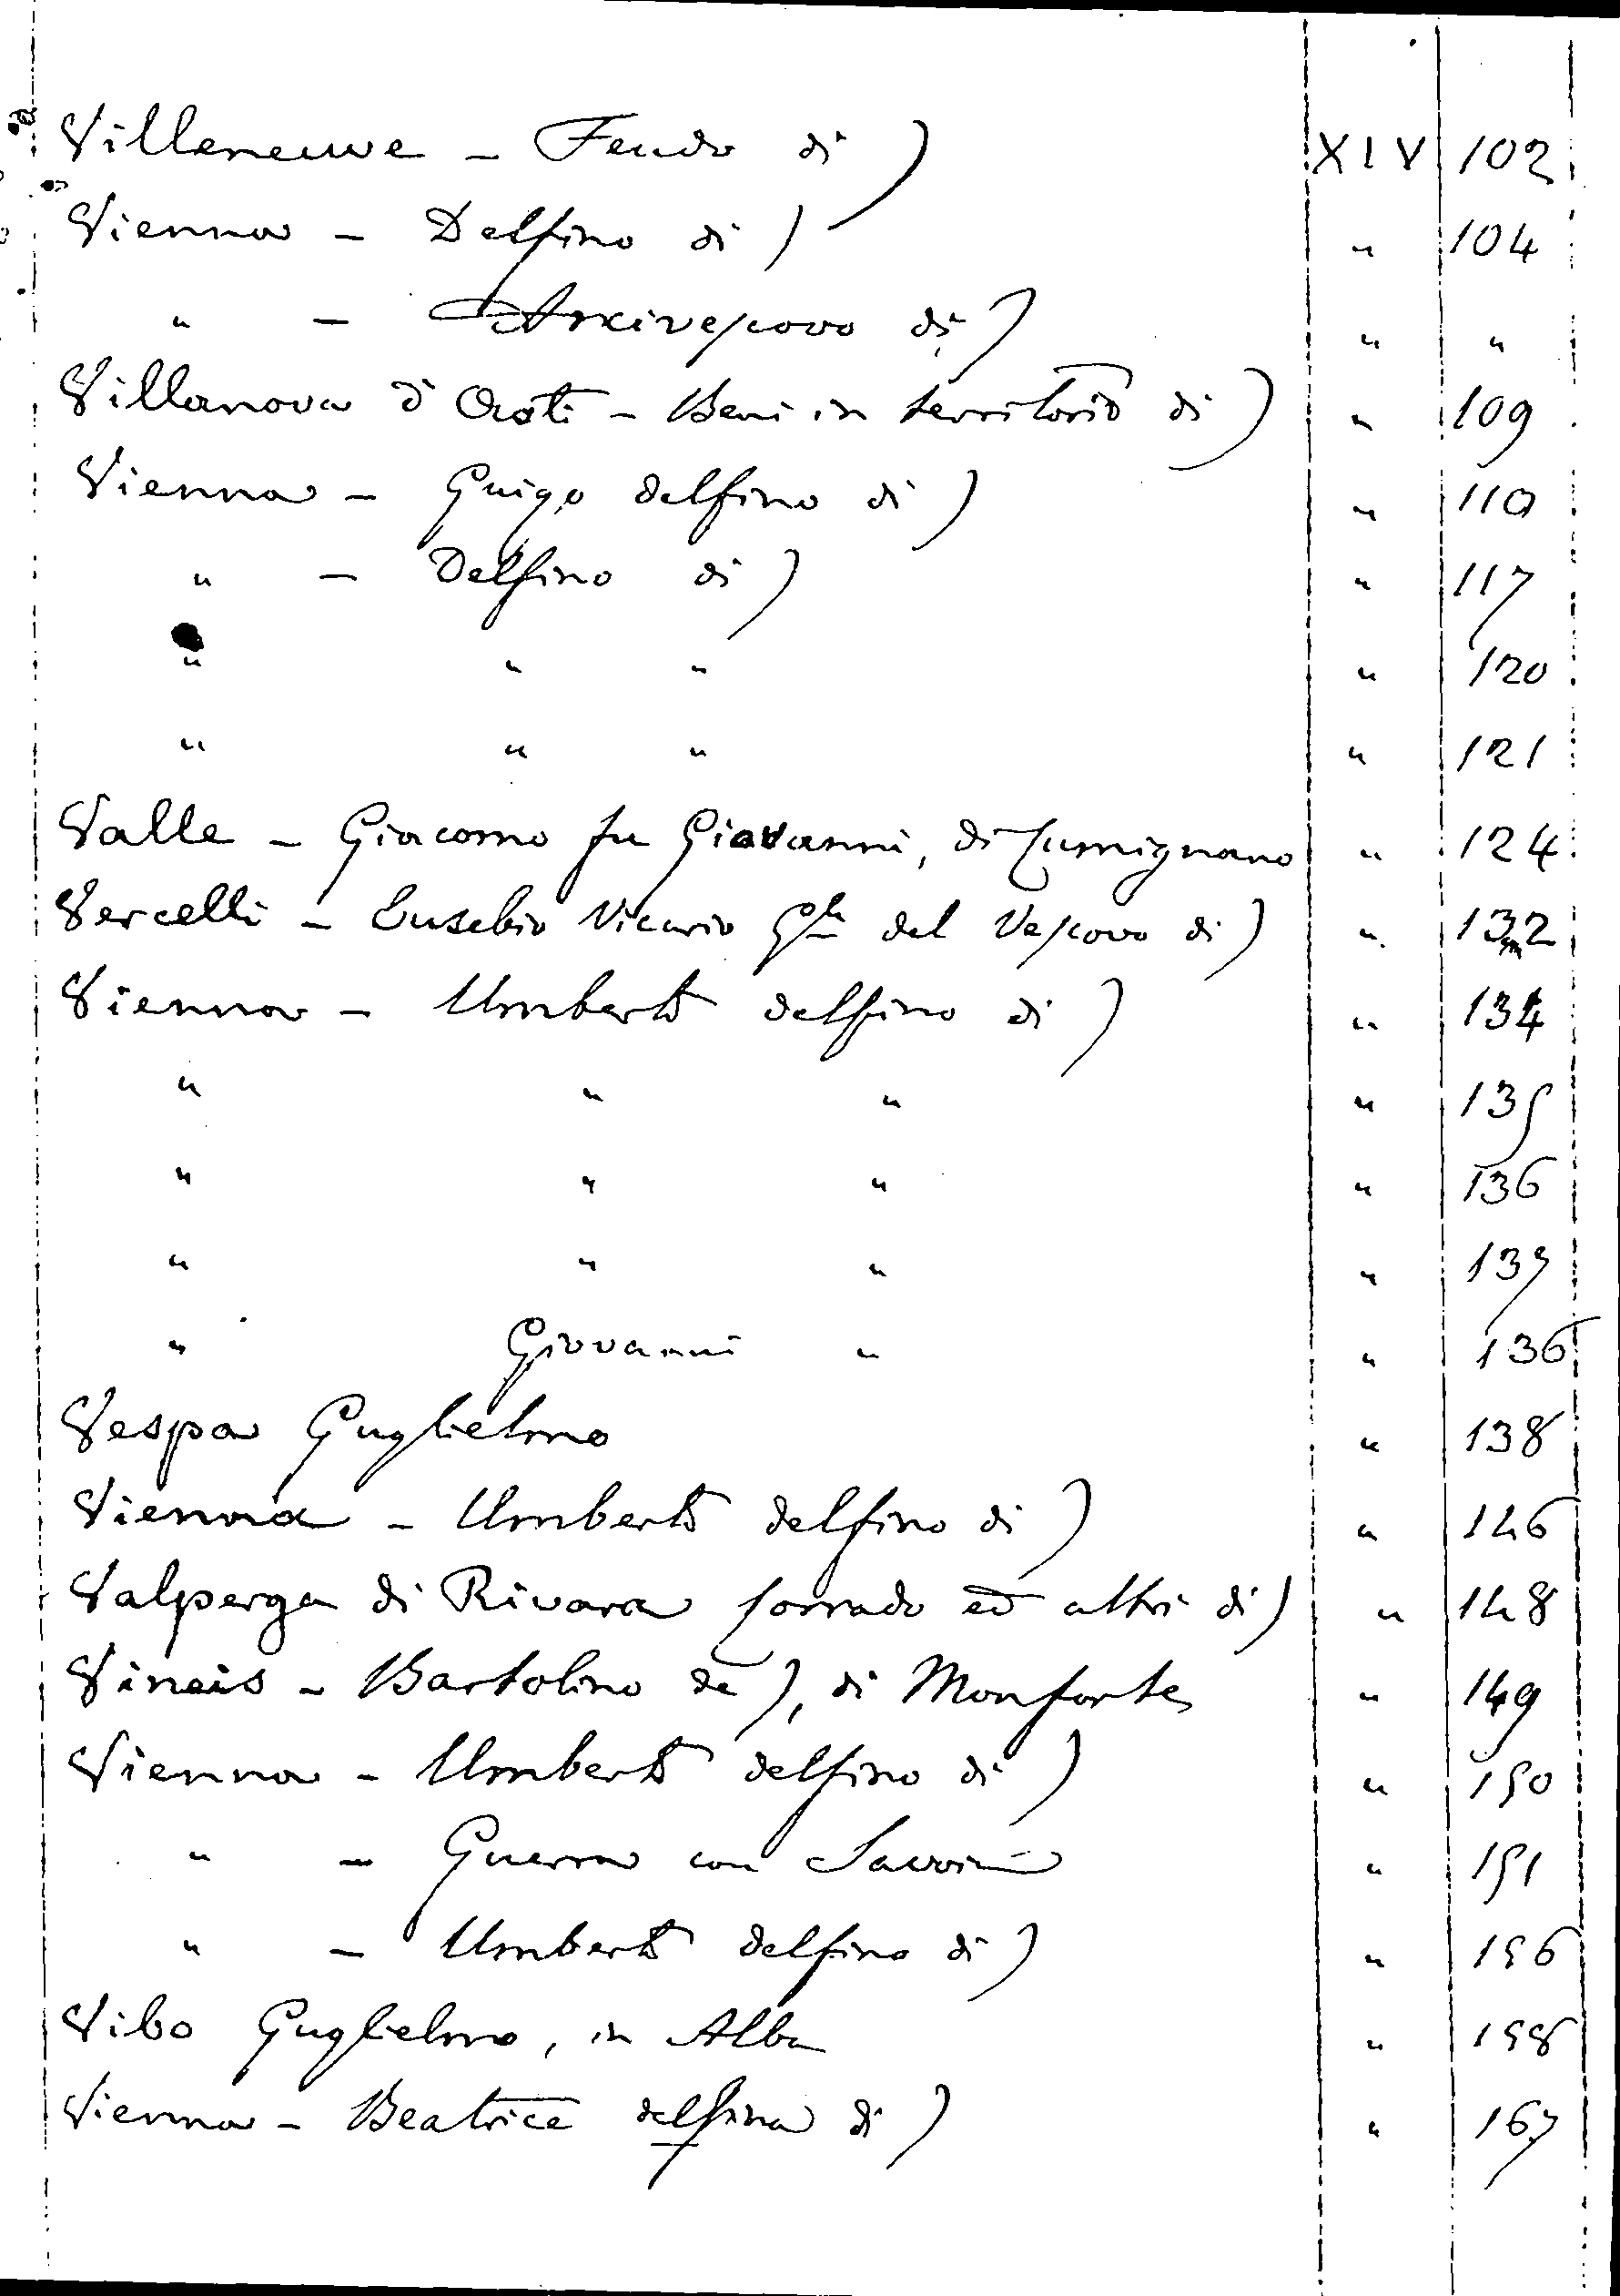 Villeneuve - Feudo di) XIV 102
Vienna - Delfino di) " 104
" - Arcivescovo di) " "
Villanova d'Asti - Beni in territorio di) " 109
Vienna - Guigo delfino di) " 110
" - Delfino di) " 117
" " " " 120
" " " " 121
Valle - Giacomo fu Giovanni, di Cumignano " 124
Vercelli - Eusebio Vicario Gle del Vescovo di) " 132
Vienna - Umberto delfino di) " 134
" " " " 135
" " " " 136
" " " " 137
" Giovanni " " 136
Vespa Guglielmo " 138
Vienna - Umberto delfino di) " 146
Valperga di Rivara Corrado ed altri di) " 148
Vineis - Bartolino de), di Monforte " 149
Vienna - Umberto delfino di) " 150
" - Guerra con Savoia " 151
" - Umberto delfino di) " 156
Vibo Guglielmo, in Alba " 158
Vienna - Beatrice delfina di) " 167